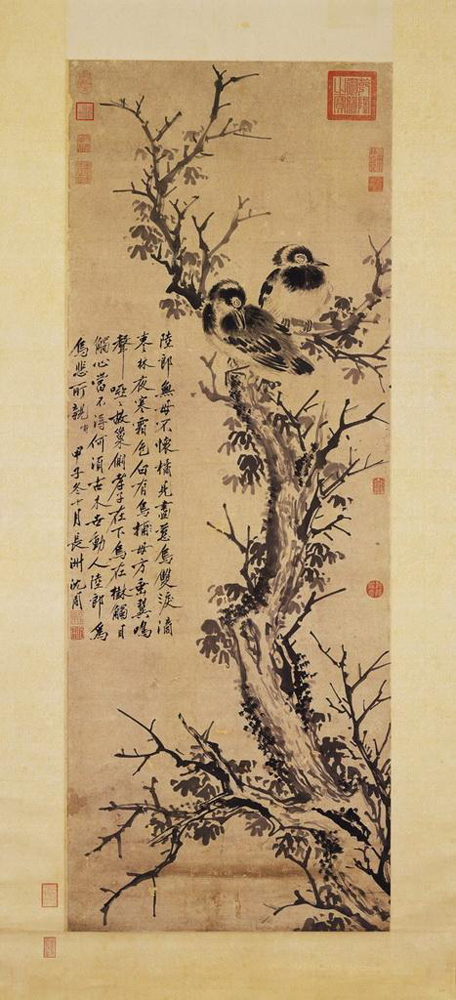 乾隆御覽之寶
陸郎無母不懷橘見畫慈烏雙淚滴
寒林夜寒霜色白有烏母方垂翼鳴
聲啞々故巢側孝子在下烏在樹觸目
觸心當不得何須古木動人陸郎為
烏悲所親甲子冬十月長洲沈周